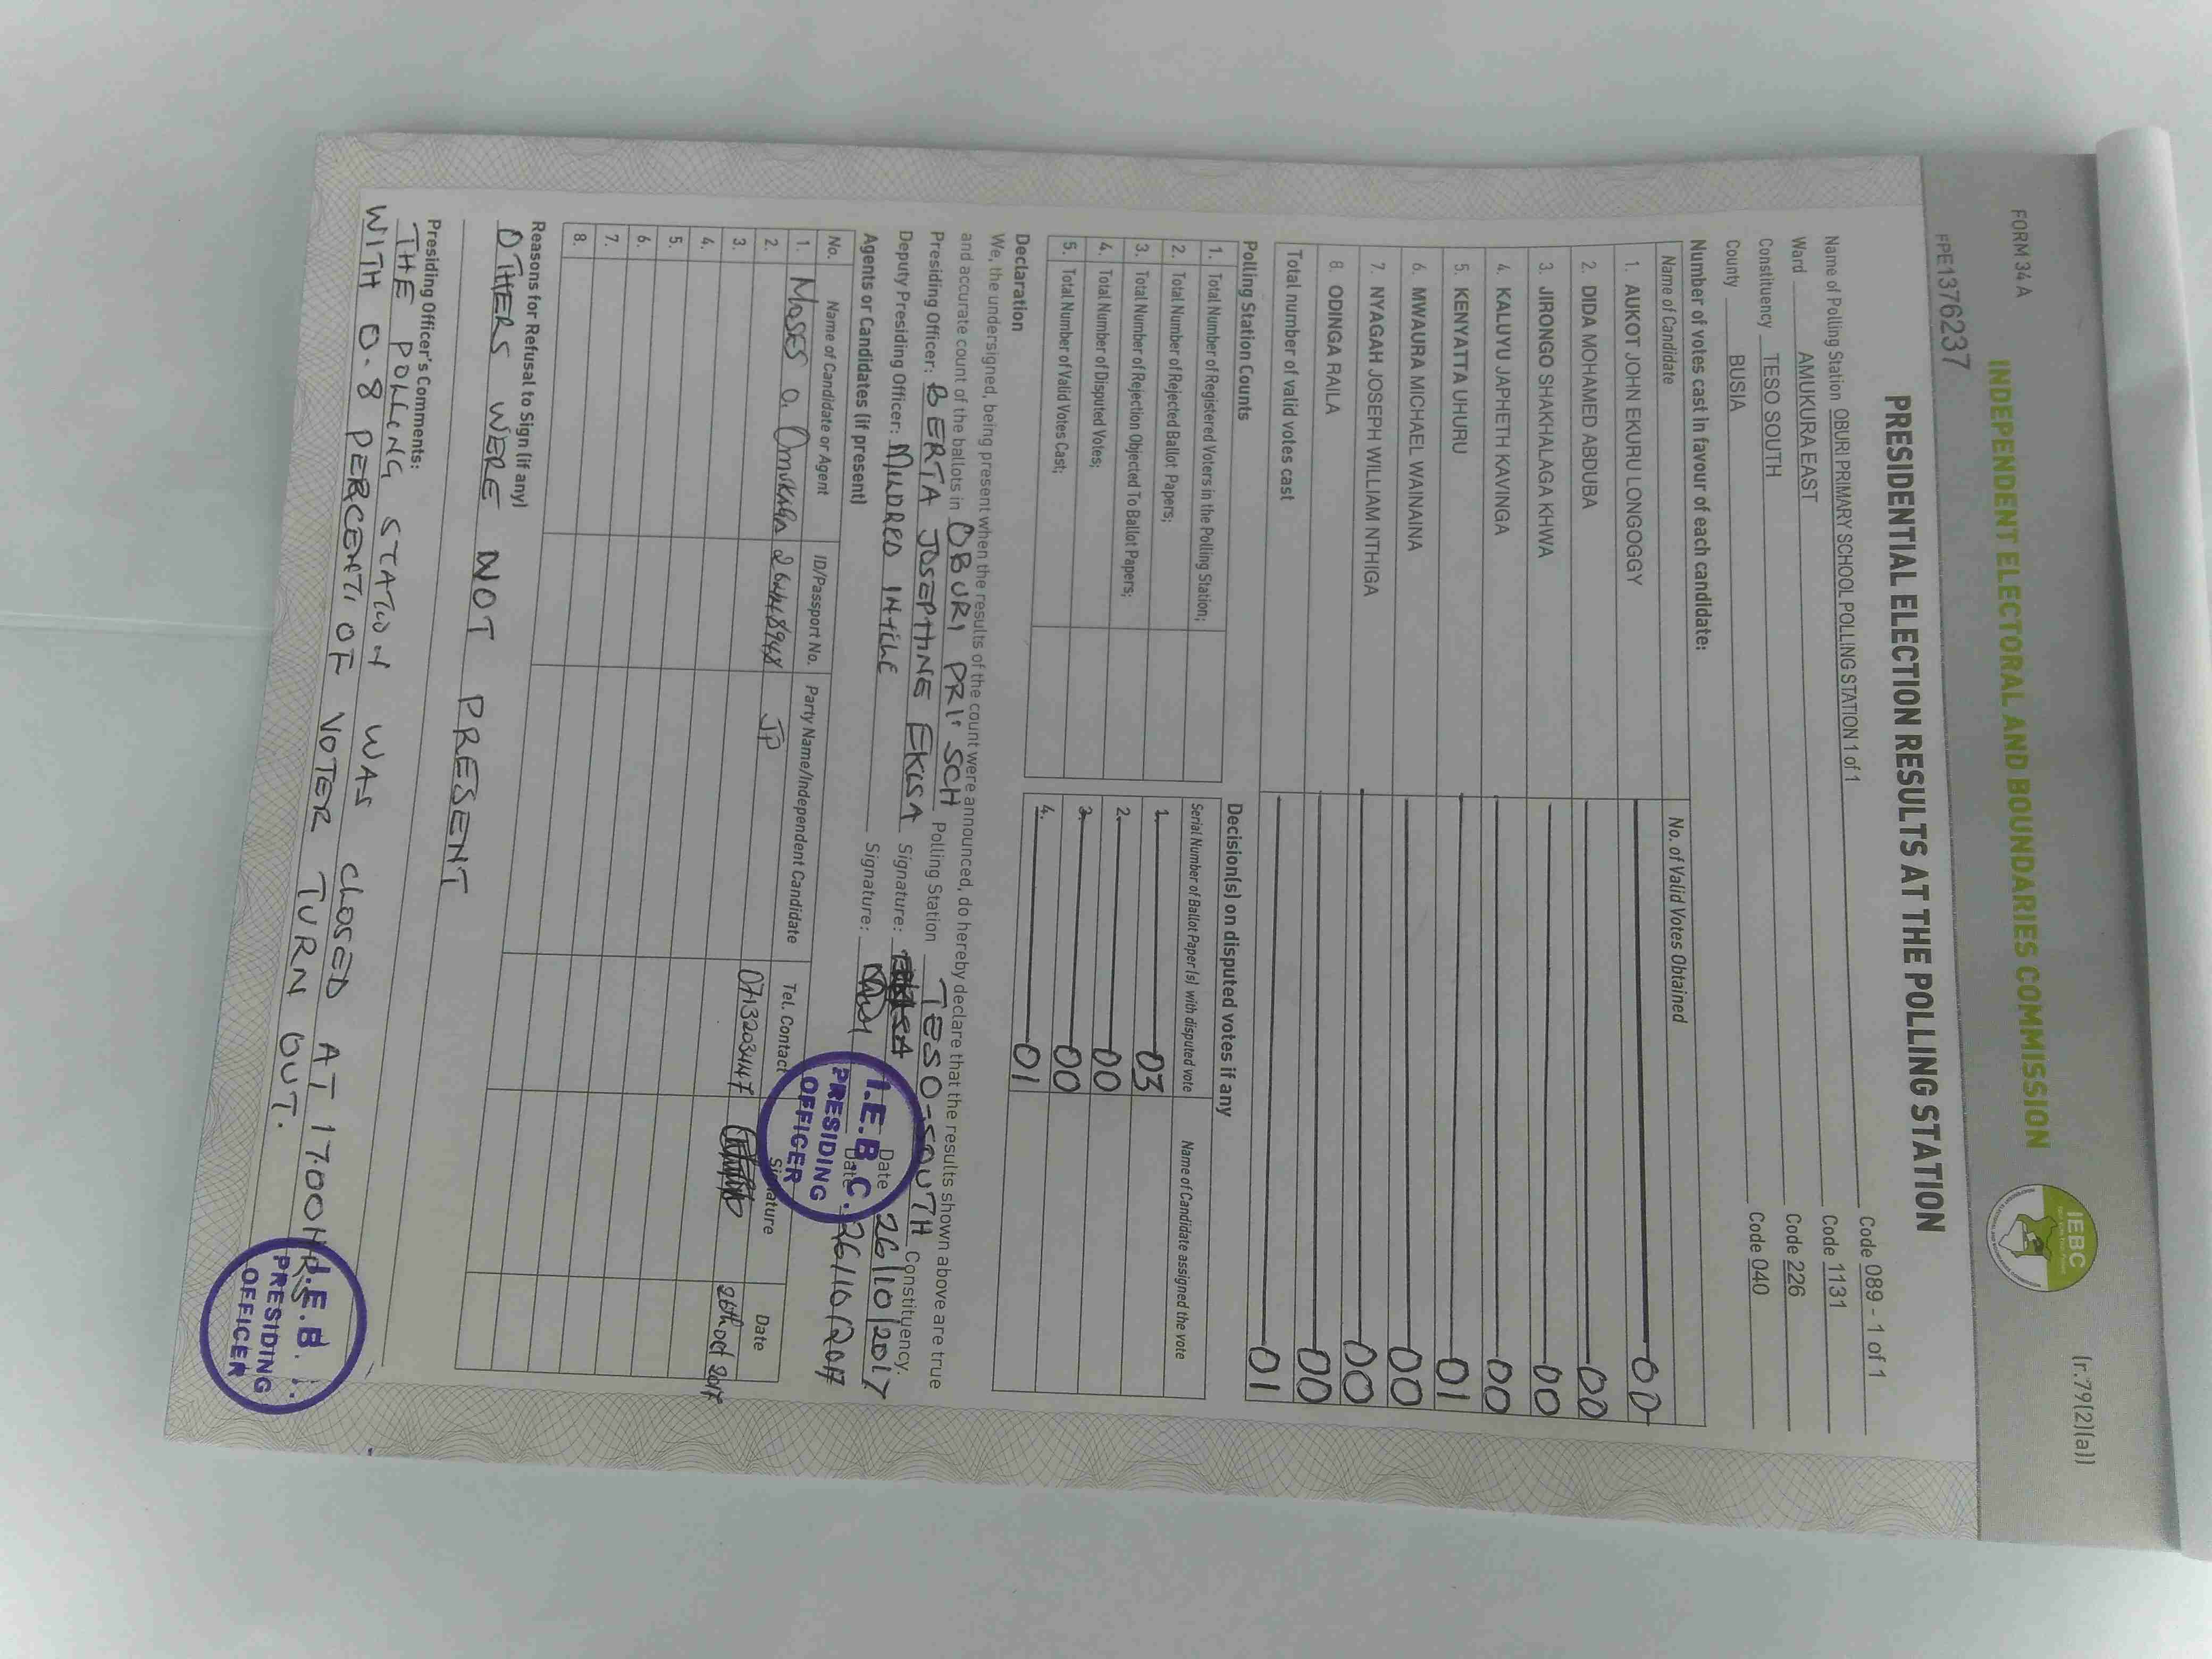 FORM 34A
(r.79(2)(a))
INDEPENDENT ELECTORAL AND BOUNDARIES COMMISSION
IEBC
FPE1376237
PRESIDENTIAL ELECTION RESULTS AT THE POLLING STATION
Name of Polling Station OBURI PRIMARY SCHOOL POLLING STATION 1 of 1 Code 089 - 1 of 1
Ward AMUKURA EAST Code 1131
Constituency TESO SOUTH Code 226
County BUSIA Code 040
Number of votes cast in favour of each candidate:
Name of Candidate No. of Valid Votes Obtained
1. AUKOT JOHN EKURU LONGOGGY 00
2. DIDA MOHAMED ABDUBA 00
3. JIRONGO SHAKHALAGA KHWA 00
4. KALUYU JAPHETH KAVINGA 00
5. KENYATTA UHURU 01
6. MWAURA MICHAEL WAINAINA 00
7. NYAGAH JOSEPH WILLIAM NTHIGA 00
8. ODINGA RAILA 00
Total number of valid votes cast 01
Polling Station Counts Decision(s) on disputed votes if any
Serial Number of Ballot Paper(s) with disputed vote Name of Candidate assigned the vote
1. Total Number of Registered Voters in the Polling Station;
2. Total Number of Rejected Ballot Papers; 1. 03
3. Total Number of Rejection Objected To Ballot Papers; 2. 00
4. Total Number of Disputed Votes; 3. 00
5. Total Number of Valid Votes Cast; 4. 01
Declaration
We, the undersigned, being present when the results of the count were announced, do hereby declare that the results shown above are true
and accurate count of the ballots in OBURI PRI' SCH Polling Station TESO-SOUTH Constituency.
Presiding Officer: BERTA JOSEPHINE EKISA Signature: Date 26/10/2017
Deputy Presiding Officer: MILDRED Signature: Date 26/10/2017
Agents or Candidates (if present)
No. Name of Candidate or Agent ID/Passport No. Party Name/Independent Candidate Tel. Contact Signature Date
1. Moses O. JP 0713203447 26th oct 2017
2.
3.
4.
5.
6.
7.
8.
I.E.B.C.
PRESIDING
OFFICER
Reasons for Refusal to Sign (if any)
OTHERS WERE NOT PRESENT
Presiding Officer's Comments:
THE POLLING STATION WAS CLOSED AT 1700HRS
WITH 0.8 PERCENT OF VOTER TURN OUT.
I.E.B.
PRESIDING
OFFICER